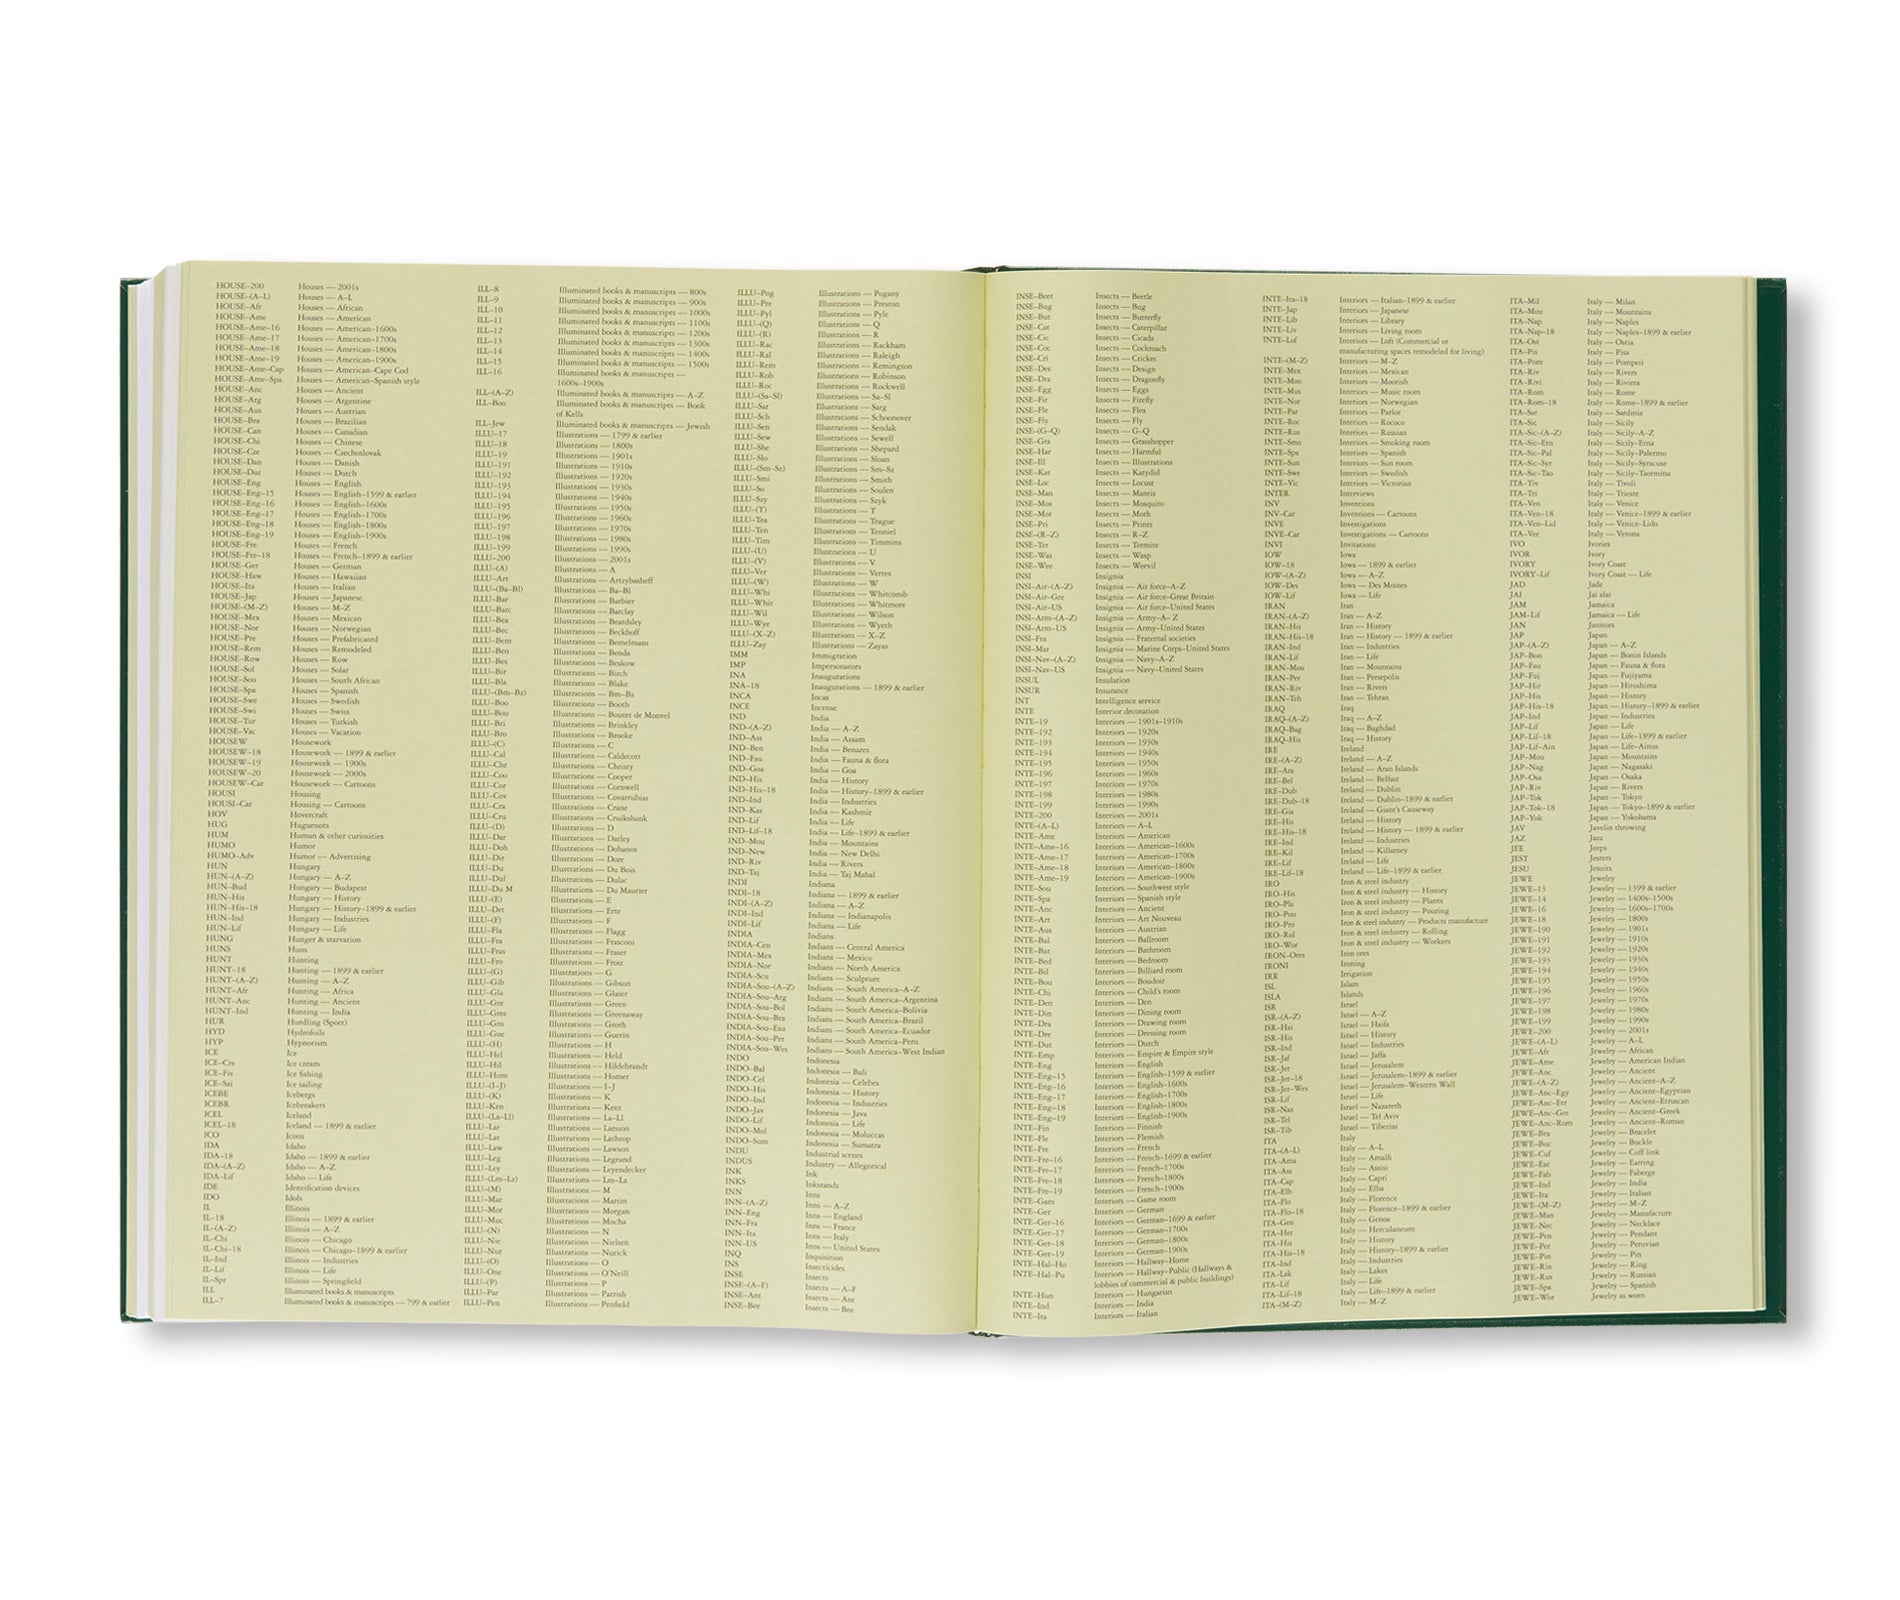 HOUSE–200 Houses — 2001s
HOUSE–(A–L) Houses — A–L
HOUSE–Afr Houses — African
HOUSE–Ame Houses — American
HOUSE–Ame–16 Houses — American–1600s
HOUSE–Ame–17 Houses — American–1700s
HOUSE–Ame–18 Houses — American–1800s
HOUSE–Ame–19 Houses — American–1900s
HOUSE–Ame–Cap Houses — American–Cape Cod
HOUSE–Ame–Spa Houses — American–Spanish style
HOUSE–Anc Houses — Ancient
HOUSE–Arg Houses — Argentine
HOUSE–Aus Houses — Austrian
HOUSE–Bra Houses — Brazilian
HOUSE–Can Houses — Canadian
HOUSE–Chi Houses — Chinese
HOUSE–Cze Houses — Czechoslovak
HOUSE–Dan Houses — Danish
HOUSE–Dut Houses — Dutch
HOUSE–Eng Houses — English
HOUSE–Eng–15 Houses — English–1599 & earlier
HOUSE–Eng–16 Houses — English–1600s
HOUSE–Eng–17 Houses — English–1700s
HOUSE–Eng–18 Houses — English–1800s
HOUSE–Eng–19 Houses — English–1900s
HOUSE–Fre Houses — French
HOUSE–Fre–18 Houses — French–1899 & earlier
HOUSE–Ger Houses — German
HOUSE–Haw Houses — Hawaiian
HOUSE–Ita Houses — Italian
HOUSE–Jap Houses — Japanese
HOUSE–(M–Z) Houses — M–Z
HOUSE–Mex Houses — Mexican
HOUSE–Nor Houses — Norwegian
HOUSE–Pre Houses — Prefabricated
HOUSE–Rem Houses — Remodeled
HOUSE–Row Houses — Row
HOUSE–Sol Houses — Solar
HOUSE–Sou Houses — South African
HOUSE–Spa Houses — Spanish
HOUSE–Swe Houses — Swedish
HOUSE–Swi Houses — Swiss
HOUSE–Tur Houses — Turkish
HOUSE–Vac Houses — Vacation
HOUSEW Housework
HOUSEW–18 Housework — 1899 & earlier
HOUSEW–19 Housework — 1900s
HOUSEW–20 Housework — 2000s
HOUSEW–Car Housework — Cartoons
HOUSI Housing
HOUSI–Car Housing — Cartoons
HOV Hovercraft
HUG Huguenots
HUM Human & other curiosities
HUMO Humor
HUMO–Adv Humor — Advertising
HUN Hungary
HUN–(A–Z) Hungary — A–Z
HUN–Bud Hungary — Budapest
HUN–His Hungary — History
HUN–His–18 Hungary — History–1899 & earlier
HUN–Ind Hungary — Industries
HUN–Lif Hungary — Life
HUNG Hunger & starvation
HUNS Huns
HUNT Hunting
HUNT–18 Hunting — 1899 & earlier
HUNT–(A–Z) Hunting — A–Z
HUNT–Afr Hunting — Africa
HUNT–Anc Hunting — Ancient
HUNT–Ind Hunting — India
HUR Hurdling (Sport)
HYD Hydrofoils
HYP Hypnotism
ICE Ice
ICE–Cre Ice cream
ICE–Fis Ice fishing
ICE–Sai Ice sailing
ICEBE Icebergs
ICEBR Icebreakers
ICEL Iceland
ICEL–18 Iceland — 1899 & earlier
ICO Icons
IDA Idaho
IDA–18 Idaho — 1899 & earlier
IDA–(A–Z) Idaho — A–Z
IDA–Lif Idaho — Life
IDE Identification devices
IDO Idols
IL Illinois
IL–18 Illinois — 1899 & earlier
IL–(A–Z) Illinois — A–Z
IL–Chi Illinois — Chicago
IL–Chi–18 Illinois — Chicago–1899 & earlier
IL–Ind Illinois — Industries
IL–Lif Illinois — Life
IL–Spr Illinois — Springfield
ILL Illuminated books & manuscripts
ILL–7 Illuminated books & manuscripts — 799 & earlier
ILL–8 Illuminated books & manuscripts — 800s
ILL–9 Illuminated books & manuscripts — 900s
ILL–10 Illuminated books & manuscripts — 1000s
ILL–11 Illuminated books & manuscripts — 1100s
ILL–12 Illuminated books & manuscripts — 1200s
ILL–13 Illuminated books & manuscripts — 1300s
ILL–14 Illuminated books & manuscripts — 1400s
ILL–15 Illuminated books & manuscripts — 1500s
ILL–16 Illuminated books & manuscripts —
1600s–1900s
ILL–(A–Z) Illuminated books & manuscripts — A–Z
ILL–Boo Illuminated books & manuscripts — Book
of Kells
ILL–Jew Illuminated books & manuscripts — Jewish
ILLU–17 Illustrations — 1799 & earlier
ILLU–18 Illustrations — 1800s
ILLU–19 Illustrations — 1901s
ILLU–191 Illustrations — 1910s
ILLU–192 Illustrations — 1920s
ILLU–193 Illustrations — 1930s
ILLU–194 Illustrations — 1940s
ILLU–195 Illustrations — 1950s
ILLU–196 Illustrations — 1960s
ILLU–197 Illustrations — 1970s
ILLU–198 Illustrations — 1980s
ILLU–199 Illustrations — 1990s
ILLU–200 Illustrations — 2001s
ILLU–(A) Illustrations — A
ILLU–Art Illustrations — Artzybasheff
ILLU–(Ba–Bl) Illustrations — Ba–Bl
ILLU–Bar Illustrations — Barbier
ILLU–Barc Illustrations — Barclay
ILLU–Bea Illustrations — Beardsley
ILLU–Bec Illustrations — Beckhoff
ILLU–Bem Illustrations — Bemelmans
ILLU–Ben Illustrations — Benda
ILLU–Bes Illustrations — Beskow
ILLU–Bir Illustrations — Birch
ILLU–Bla Illustrations — Blake
ILLU–(Bm–Bz) Illustrations — Bm–Bz
ILLU–Boo Illustrations — Booth
ILLU–Bou Illustrations — Boutet de Monvel
ILLU–Bri Illustrations — Brinkley
ILLU–Bro Illustrations — Brooke
ILLU–(C) Illustrations — C
ILLU–Cal Illustrations — Caldecott
ILLU–Chr Illustrations — Christy
ILLU–Coo Illustrations — Cooper
ILLU–Cor Illustrations — Cornwell
ILLU–Cov Illustrations — Covarrubias
ILLU–Cra Illustrations — Crane
ILLU–Cru Illustrations — Cruikshank
ILLU–(D) Illustrations — D
ILLU–Dar Illustrations — Darley
ILLU–Doh Illustrations — Dohanos
ILLU–Dir Illustrations — Dore
ILLU–Du Illustrations — Du Bois
ILLU–Dul Illustrations — Dulac
ILLU–Du M Illustrations — Du Maurier
ILLU–(E) Illustrations — E
ILLU–Det Illustrations — Erte
ILLU–(F) Illustrations — F
ILLU–Fla Illustrations — Flagg
ILLU–Fra Illustrations — Frasconi
ILLU–Fras Illustrations — Fraser
ILLU–Fro Illustrations — Frost
ILLU–(G) Illustrations — G
ILLU–Gib Illustrations — Gibson
ILLU–Gla Illustrations — Glaser
ILLU–Gre Illustrations — Green
ILLU–Gree Illustrations — Greenaway
ILLU–Gro Illustrations — Groth
ILLU–Gue Illustrations — Guerin
ILLU–(H) Illustrations — H
ILLU–Hel Illustrations — Held
ILLU–Hil Illustrations — Hildebrandt
ILLU–Hom Illustrations — Homer
ILLU–(I–J) Illustrations — I–J
ILLU–(K) Illustrations — K
ILLU–Ken Illustrations — Kent
ILLU–(La–Ll) Illustrations — La–Ll
ILLU–Lar Illustrations — Larsson
ILLU–Lat Illustrations — Lathrop
ILLU–Law Illustrations — Lawson
ILLU–Leg Illustrations — Legrand
ILLU–Ley Illustrations — Leyendecker
ILLU–(Lm–Lz) Illustrations — Lm–La
ILLU–(M) Illustrations — M
ILLU–Mar Illustrations — Martin
ILLU–Mor Illustrations — Morgan
ILLU–Muc Illustrations — Mucha
ILLU–(N) Illustrations — N
ILLU–Nie Illustrations — Nielsen
ILLU–Nur Illustrations — Nurick
ILLU–(O) Illustrations — O
ILLU–One Illustrations — O'Neill
ILLU–(P) Illustrations — P
ILLU–Par Illustrations — Parrish
ILLU–Pen Illustrations — Penfield
ILLU–Pog Illustrations — Pogany
ILLU–Pre Illustrations — Preston
ILLU–Pyl Illustrations — Pyle
ILLU–(Q) Illustrations — Q
ILLU–(R) Illustrations — R
ILLU–Rac Illustrations — Rackham
ILLU–Ral Illustrations — Raleigh
ILLU–Rem Illustrations — Remington
ILLU–Rob Illustrations — Robinson
ILLU–Roc Illustrations — Rockwell
ILLU–(Sa–Sl) Illustrations — Sa–Sl
ILLU–Sar Illustrations — Sarg
ILLU–Sch Illustrations — Schoonover
ILLU–Sen Illustrations — Sendak
ILLU–Sew Illustrations — Sewell
ILLU–She Illustrations — Shepard
ILLU–Slo Illustrations — Sloan
ILLU–(Sm–Sz) Illustrations — Sm–Sz
ILLU–Smi Illustrations — Smith
ILLU–So Illustrations — Soulen
ILLU–Szy Illustrations — Szyk
ILLU–(T) Illustrations — T
ILLU–Tea Illustrations — Teague
ILLU–Ten Illustrations — Tenniel
ILLU–Tim Illustrations — Timmins
ILLU–(U) Illustrations — U
ILLU–(V) Illustrations — V
ILLU–Ver Illustrations — Vertes
ILLU–(W) Illustrations — W
ILLU–Whi Illustrations — Whitcomb
ILLU–Whit Illustrations — Whitmore
ILLU–Wil Illustrations — Wilson
ILLU–Wye Illustrations — Wyeth
ILLU–(X–Z) Illustrations — X–Z
ILLU–Zay Illustrations — Zayas
IMM Immigration
IMP Impersonators
INA Inaugurations
INA–18 Inaugurations — 1899 & earlier
INCA Incas
INCE Incense
IND India
IND–(A–Z) India — A–Z
IND–Ass India — Assam
IND–Ben India — Benares
IND–Fau India — Fauna & flora
IND–Goa India — Goa
IND–His India — History
IND–His–18 India — History–1899 & earlier
IND–Ind India — Industries
IND–Kas India — Kashmir
IND–Lif India — Life
IND–Lif–18 India — Life–1899 & earlier
IND–Mou India — Mountains
IND–New India — New Delhi
IND–Riv India — Rivers
IND–Taj India — Taj Mahal
INDI Indiana
INDI–18 Indiana — 1899 & earlier
INDI–(A–Z) Indiana — A–Z
INDI–Ind Indiana — Indianapolis
INDI–Lif Indiana — Life
INDIA Indians
INDIA–Cen Indians — Central America
INDIA–Mex Indians — Mexico
INDIA–Nor Indians — North America
INDIA–Scu Indians — Sculpture
INDIA–Sou–(A–Z) Indians — South America–A–Z
INDIA–Sou–Arg Indians — South America–Argentina
INDIA–Sou–Bol Indians — South America–Bolivia
INDIA–Sou–Bra Indians — South America–Brazil
INDIA–Sou–Esu Indians — South America–Ecuador
INDIA–Sou–Per Indians — South America–Peru
INDIA–Sou–Wes Indians — South America–West Indian
INDO Indonesia
INDO–Bal Indonesia — Bali
INDO–Cel Indonesia — Celebes
INDO–His Indonesia — History
INDO–Ind Indonesia — Industries
INDO–Jav Indonesia — Java
INDO–Lif Indonesia — Life
INDO–Mol Indonesia — Moluccas
INDO–Sum Indonesia — Sumatra
INDU Industrial scenes
INDUS Industry — Allegorical
INK Ink
INKS Inkstands
INN Inns
INN–(A–Z) Inns — A–Z
INN–Eng Inns — England
INN–Fra Inns — France
INN–Ita Inns — Italy
INN–US Inns — United States
INQ Inquisition
INS Insecticides
INSE Insects
INSE–(A–F) Insects — A–F
INSE–Ant Insects — Ant
INSE–Bee Insects — Bee
INSE–Beet Insects — Beetle
INSE–Bug Insects — Bug
INSE–But Insects — Butterfly
INSE–Cat Insects — Caterpillar
INSE–Cic Insects — Cicada
INSE–Coc Insects — Cockroach
INSE–Cri Insects — Cricket
INSE–Des Insects — Design
INSE–Dra Insects — Dragonfly
INSE–Egg Insects — Eggs
INSE–Fir Insects — Firefly
INSE–Fle Insects — Flea
INSE–Fly Insects — Fly
INSE–(G–Q) Insects — G–Q
INSE–Gra Insects — Grasshopper
INSE–Har Insects — Harmful
INSE–Ill Insects — Illustrations
INSE–Kat Insects — Katydid
INSE–Loc Insects — Locust
INSE–Man Insects — Mantis
INSE–Mos Insects — Mosquito
INSE–Mot Insects — Moth
INSE–Pri Insects — Prints
INSE–(R–Z) Insects — R–Z
INSE–Ter Insects — Termite
INSE–Was Insects — Wasp
INSE–Wee Insects — Weevil
INSI Insignia
INSI–Air–(A–Z) Insignia — Air force–A–Z
INSI–Air–Gre Insignia — Air force–Great Britain
INSI–Air–US Insignia — Air force–United States
INSI–Arm–(A–Z) Insignia — Army–A– Z
INSI–Arm–US Insignia — Army–United States
INSI–Fra Insignia — Fraternal societies
INSI–Mar Insignia — Marine Corps–United States
INSI–Nav–(A–Z) Insignia — Navy–A–Z
INSI–Nav–US Insignia — Navy–United States
INSUL Insulation
INSUR Insurance
INT Intelligence service
INTE Interior decoration
INTE–19 Interiors — 1901s–1910s
INTE–192 Interiors — 1920s
INTE–193 Interiors — 1930s
INTE–194 Interiors — 1940s
INTE–195 Interiors — 1950s
INTE–196 Interiors — 1960s
INTE–197 Interiors — 1970s
INTE–198 Interiors — 1980s
INTE–199 Interiors — 1990s
INTE–200 Interiors — 2001s
INTE–(A–L) Interiors — A–L
INTE–Ame Interiors — American
INTE–Ame–16 Interiors — American–1600s
INTE–Ame–17 Interiors — American–1700s
INTE–Ame–18 Interiors — American–1800s
INTE–Ame–19 Interiors — American–1900s
INTE–Sou Interiors — Southwest style
INTE–Spa Interiors — Spanish style
INTE–Anc Interiors — Ancient
INTE–Art Interiors — Art Nouveau
INTE–Aus Interiors — Austrian
INTE–Bal Interiors — Ballroom
INTE–Bat Interiors — Bathroom
INTE–Bed Interiors — Bedroom
INTE–Bil Interiors — Billiard room
INTE–Bou Interiors — Boudoir
INTE–Chi Interiors — Child's room
INTE–Den Interiors — Den
INTE–Din Interiors — Dining room
INTE–Dra Interiors — Drawing room
INTE–Dre Interiors — Dressing room
INTE–Dut Interiors — Dutch
INTE–Emp Interiors — Empire & Empire style
INTE–Eng Interiors — English
INTE–Eng–15 Interiors — English–1599 & earlier
INTE–Eng–16 Interiors — English–1600s
INTE–Eng–17 Interiors — English–1700s
INTE–Eng–18 Interiors — English–1800s
INTE–Eng–19 Interiors — English–1900s
INTE–Fin Interiors — Finnish
INTE–Fle Interiors — Flemish
INTE–Fre Interiors — French
INTE–Fre–16 Interiors — French–1699 & earlier
INTE–Fre–17 Interiors — French–1700s
INTE–Fre–18 Interiors — French–1800s
INTE–Fre–19 Interiors — French–1900s
INTE–Gam Interiors — Game room
INTE–Ger Interiors — German
INTE–Ger–16 Interiors — German–1699 & earlier
INTE–Ger–17 Interiors — German–1700s
INTE–Ger–18 Interiors — German–1800s
INTE–Ger–19 Interiors — German–1900s
INTE–Hal–Ho Interiors — Hallway–Home
INTE–Hal–Pu Interiors — Hallway–Public (Hallways &
lobbies of commercial & public buildings)
INTE–Hun Interiors — Hungarian
INTE–Ind Interiors — India
INTE–Ita Interiors — Italian
INTE–Ita–18 Interiors — Italian–1899 & earlier
INTE–Jap Interiors — Japanese
INTE–Lib Interiors — Library
INTE–Liv Interiors — Living room
INTE–Lof Interiors — Loft (Commercial or
manufacturing spaces remodeled for living)
INTE–(M–Z) Interiors — M–Z
INTE–Mex Interiors — Mexican
INTE–Moo Interiors — Moorish
INTE–Mus Interiors — Music room
INTE–Nor Interiors — Norwegian
INTE–Par Interiors — Parlor
INTE–Roc Interiors — Rococo
INTE–Rus Interiors — Russian
INTE–Smo Interiors — Smoking room
INTE–Spa Interiors — Spanish
INTE–Sun Interiors — Sun room
INTE–Swe Interiors — Swedish
INTE–Vic Interiors — Victorian
INTER Interviews
INV Inventions
INV–Car Inventions — Cartoons
INVE Investigations
INVE–Car Investigations — Cartoons
INVI Invitations
IOW Iowa
IOW–18 Iowa — 1899 & earlier
IOW–(A–Z) Iowa — A–Z
IOW–Des Iowa — Des Moines
IOW–Lif Iowa — Life
IRAN Iran
IRAN–(A–Z) Iran — A–Z
IRAN–His Iran — History
IRAN–His–18 Iran — History — 1899 & earlier
IRAN–Ind Iran — Industries
IRAN–Lif Iran — Life
IRAN–Mou Iran — Mountains
IRAN–Per Iran — Persepolis
IRAN–Riv Iran — Rivers
IRAN–Teh Iran — Tehran
IRAQ Iraq
IRAQ–(A–Z) Iraq — A–Z
IRAQ–Bag Iraq — Baghdad
IRAQ–His Iraq — History
IRE Ireland
IRE–(A–Z) Ireland — A–Z
IRE–Ara Ireland — Aran Islands
IRE–Bel Ireland — Belfast
IRE–Dub Ireland — Dublin
IRE–Dub–18 Ireland — Dublin–1899 & earlier
IRE–Gia Ireland — Giant's Causeway
IRE–His Ireland — History
IRE–His–18 Ireland — History — 1899 & earlier
IRE–Ind Ireland — Industries
IRE–Kil Ireland — Killarney
IRE–Lif Ireland — Life
IRE–Lif–18 Ireland — Life–1899 & earlier
IRO Iron & steel industry
IRO–His Iron & steel industry — History
IRO–Pla Iron & steel industry — Plants
IRO–Pou Iron & steel industry — Pouring
IRO–Pro Iron & steel industry — Products manufacture
IRO–Rol Iron & steel industry — Rolling
IRO–Wor Iron & steel industry — Workers
IRON–Ores Iron ores
IRONI Ironing
IRR Irrigation
ISL Islam
ISLA Islands
ISR Israel
ISR–(A–Z) Israel — A–Z
ISR–Hai Israel — Haifa
ISR–His Israel — History
ISR–Ind Israel — Industries
ISR–Jaf Israel — Jaffa
ISR–Jer Israel — Jerusalem
ISR–Jer–18 Israel — Jerusalem–1899 & earlier
ISR–Jer–Wes Israel — Jerusalem–Western Wall
ISR–Lif Israel — Life
ISR–Naz Israel — Nazareth
ISR–Tel Israel — Tel Aviv
ISR–Tib Israel — Tiberias
ITA Italy
ITA–(A–L) Italy — A–L
ITA–Ama Italy — Amalfi
ITA–Ass Italy — Assisi
ITA–Cap Italy — Capri
ITA–Elb Italy — Elba
ITA–Flo Italy — Florence
ITA–Flo–18 Italy — Florence–1899 & earlier
ITA–Gen Italy — Genoa
ITA–Her Italy — Herculaneum
ITA–His Italy — History
ITA–His–18 Italy — History–1899 & earlier
ITA–Ind Italy — Industries
ITA–Lak Italy — Lakes
ITA–Lif Italy — Life
ITA–Lif–18 Italy — Life–1899 & earlier
ITA–(M–Z) Italy — M–Z
ITA–Mil Italy — Milan
ITA–Mou Italy — Mountains
ITA–Nap Italy — Naples
ITA–Nap–18 Italy — Naples–1899 & earlier
ITA–Ost Italy — Ostia
ITA–Pis Italy — Pisa
ITA–Pom Italy — Pompeii
ITA–Riv Italy — Rivers
ITA–Rivi Italy — Riviera
ITA–Rom Italy — Rome
ITA–Rom–18 Italy — Rome–1899 & earlier
ITA–Sar Italy — Sardinia
ITA–Sic Italy — Sicily
ITA–Sic–(A–Z) Italy — Sicily–A–Z
ITA–Sic–Etn Italy — Sicily–Etna
ITA–Sic–Pal Italy — Sicily–Palermo
ITA–Sic–Syr Italy — Sicily–Syracuse
ITA–Sic–Tao Italy — Sicily–Taormina
ITA–Tiv Italy — Tivoli
ITA–Tri Italy — Trieste
ITA–Ven Italy — Venice
ITA–Ven–18 Italy — Venice–1899 & earlier
ITA–Ven–Lid Italy — Venice–Lido
ITA–Ver Italy — Verona
IVO Ivories
IVOR Ivory
IVORY Ivory Coast
IVORY–Lif Ivory Coast — Life
JAD Jade
JAI Jai alai
JAM Jamaica
JAM–Lif Jamaica — Life
JAN Janitors
JAP Japan
JAP–(A–Z) Japan — A–Z
JAP–Bon Japan — Bonin Islands
JAP–Fau Japan — Fauna & flora
JAP–Fuj Japan — Fujiyama
JAP–Hir Japan — Hiroshima
JAP–His Japan — History
JAP–His–18 Japan — History–1899 & earlier
JAP–Ind Japan — Industries
JAP–Lif Japan — Life
JAP–Lif–18 Japan — Life–1899 & earlier
JAP–Lif–Ain Japan — Life–Ainus
JAP–Mou Japan — Mountains
JAP–Nag Japan — Nagasaki
JAP–Osa Japan — Osaka
JAP–Riv Japan — Rivers
JAP–Tok Japan — Tokyo
JAP–Tok–18 Japan — Tokyo–1899 & earlier
JAP–Yok Japan — Yokohama
JAV Javelin throwing
JAZ Jazz
JEE Jeeps
JEST Jesters
JESU Jesuits
JEWE Jewelry
JEWE–13 Jewelry — 1399 & earlier
JEWE–14 Jewelry — 1400s–1500s
JEWE–16 Jewelry — 1600s–1700s
JEWE–18 Jewelry — 1800s
JEWE–190 Jewelry — 1901s
JEWE–191 Jewelry — 1910s
JEWE–192 Jewelry — 1920s
JEWE–193 Jewelry — 1930s
JEWE–194 Jewelry — 1940s
JEWE–195 Jewelry — 1950s
JEWE–196 Jewelry — 1960s
JEWE–197 Jewelry — 1970s
JEWE–198 Jewelry — 1980s
JEWE–199 Jewelry — 1990s
JEWE–200 Jewelry — 2001s
JEWE–(A–L) Jewelry — A–L
JEWE–Afr Jewelry — African
JEWE–Ame Jewelry — American Indian
JEWE–Anc Jewelry — Ancient
JEWE–(A–Z) Jewelry — Ancient–A–Z
JEWE–Anc–Egy Jewelry — Ancient–Egyptian
JEWE–Anc–Etr Jewelry — Ancient–Etruscan
JEWE–Anc–Gre Jewelry — Ancient–Greek
JEWE–Anc–Rom Jewelry — Ancient–Roman
JEWE–Bra Jewelry — Bracelet
JEWE–Buc Jewelry — Buckle
JEWE–Cuf Jewelry — Cuff link
JEWE–Ear Jewelry — Earring
JEWE–Fab Jewelry — Faberge
JEWE–Ind Jewelry — India
JEWE–Ita Jewelry — Italian
JEWE–(M–Z) Jewelry — M–Z
JEWE–Man Jewelry — Manufacture
JEWE–Nec Jewelry — Necklace
JEWE–Pen Jewelry — Pendant
JEWE–Per Jewelry — Peruvian
JEWE–Pin Jewelry — Pin
JEWE–Rin Jewelry — Ring
JEWE–Rus Jewelry — Russian
JEWE–Spa Jewelry — Spanish
JEWE–Wor Jewelry as worn